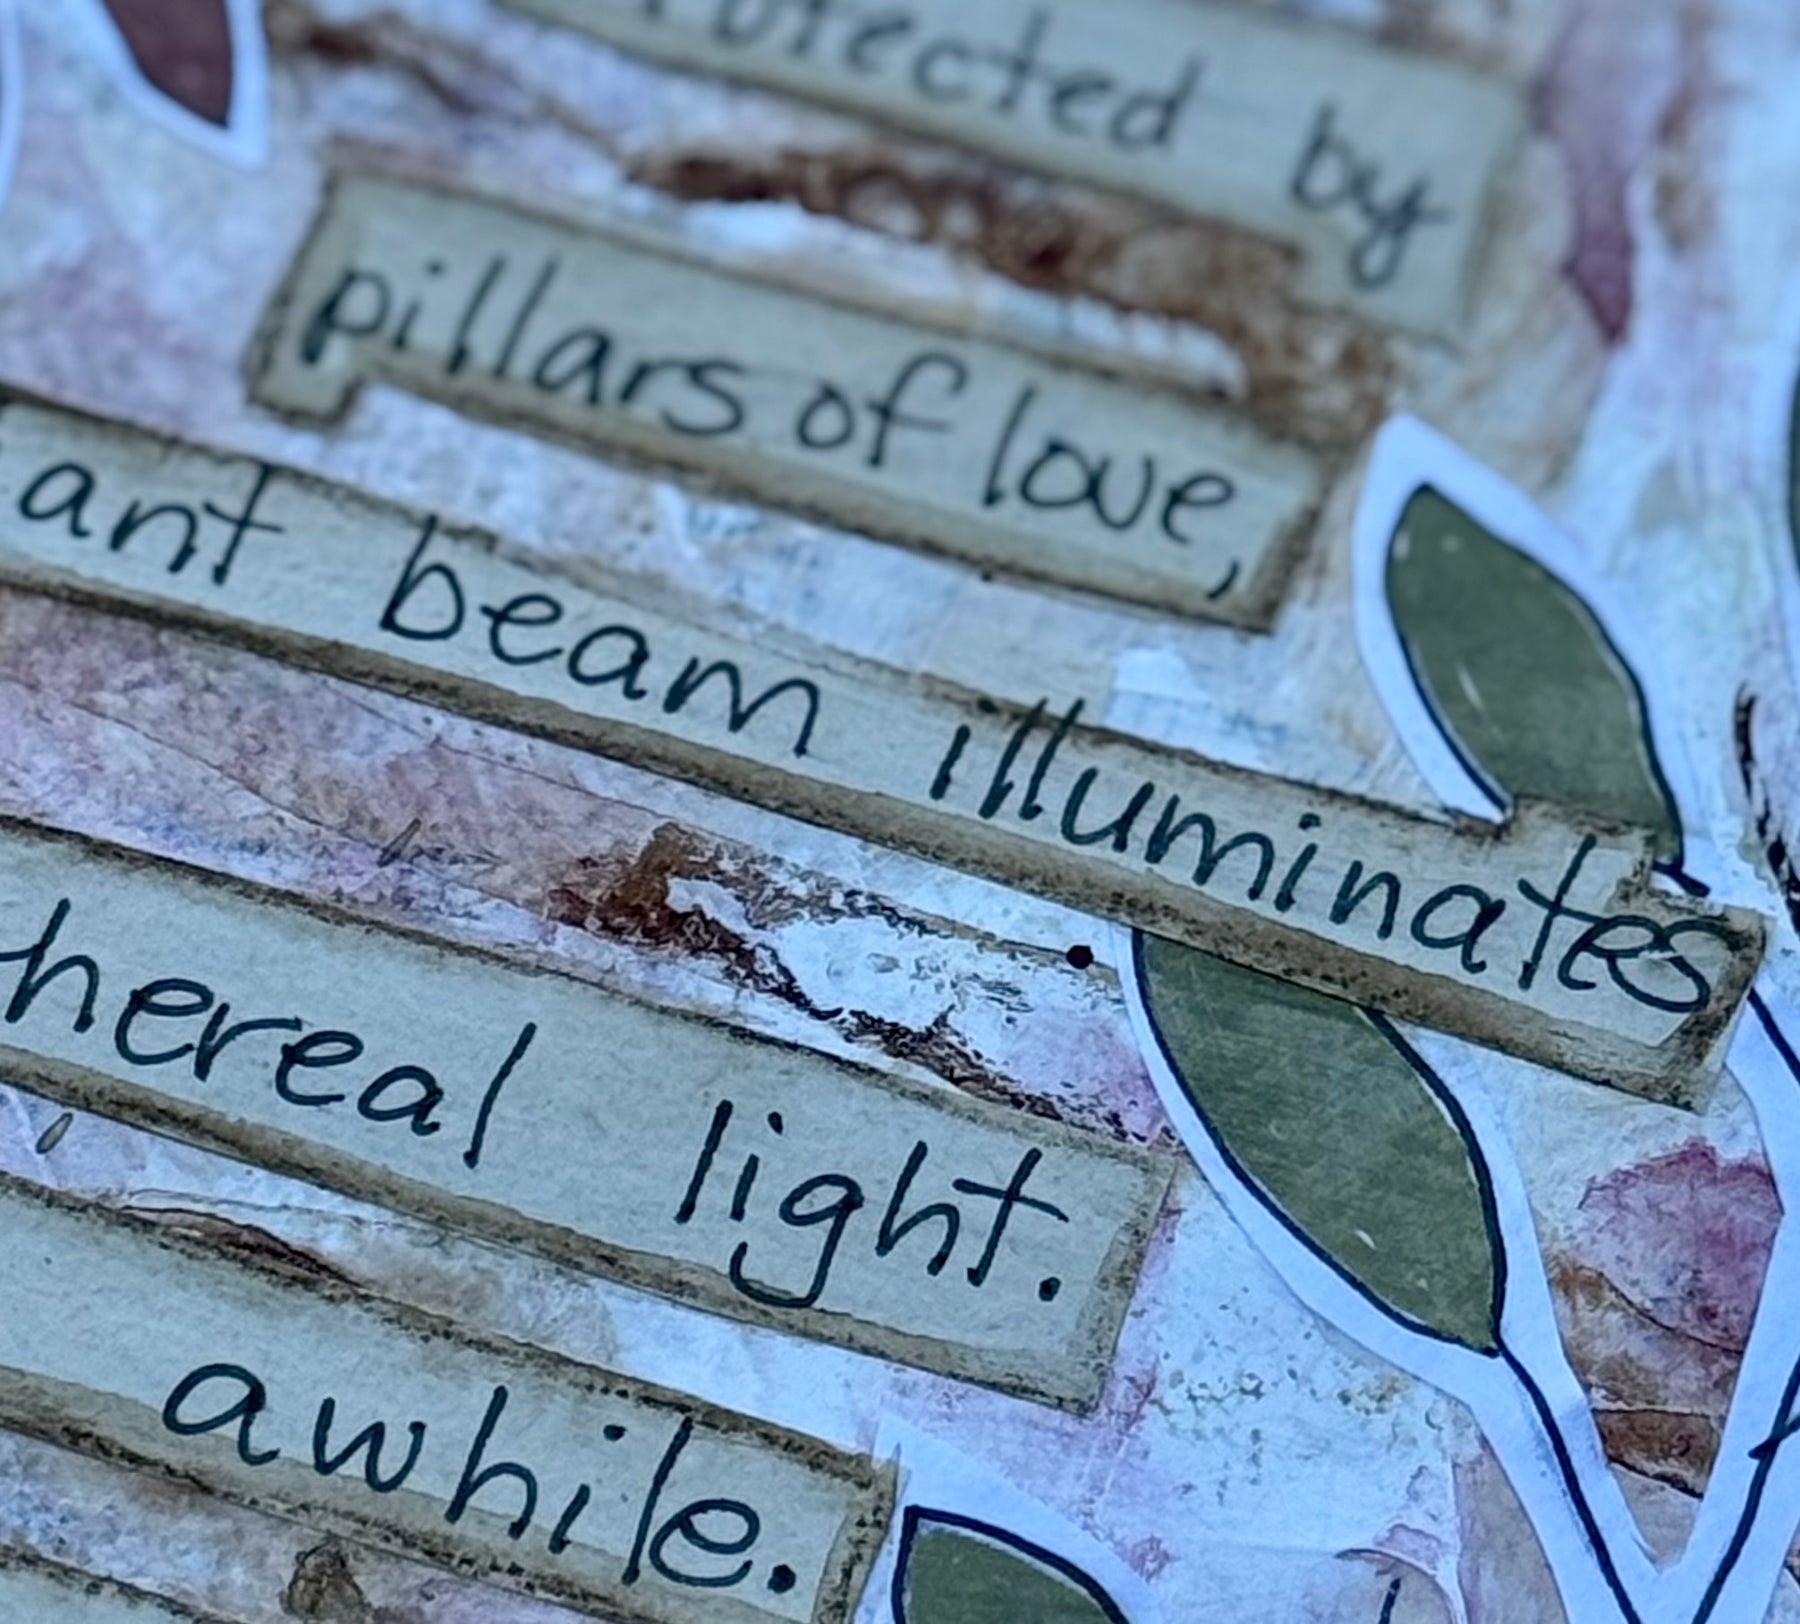 rotected by
pillars of love,
ant beam illuminates
hereal light.
awhile.